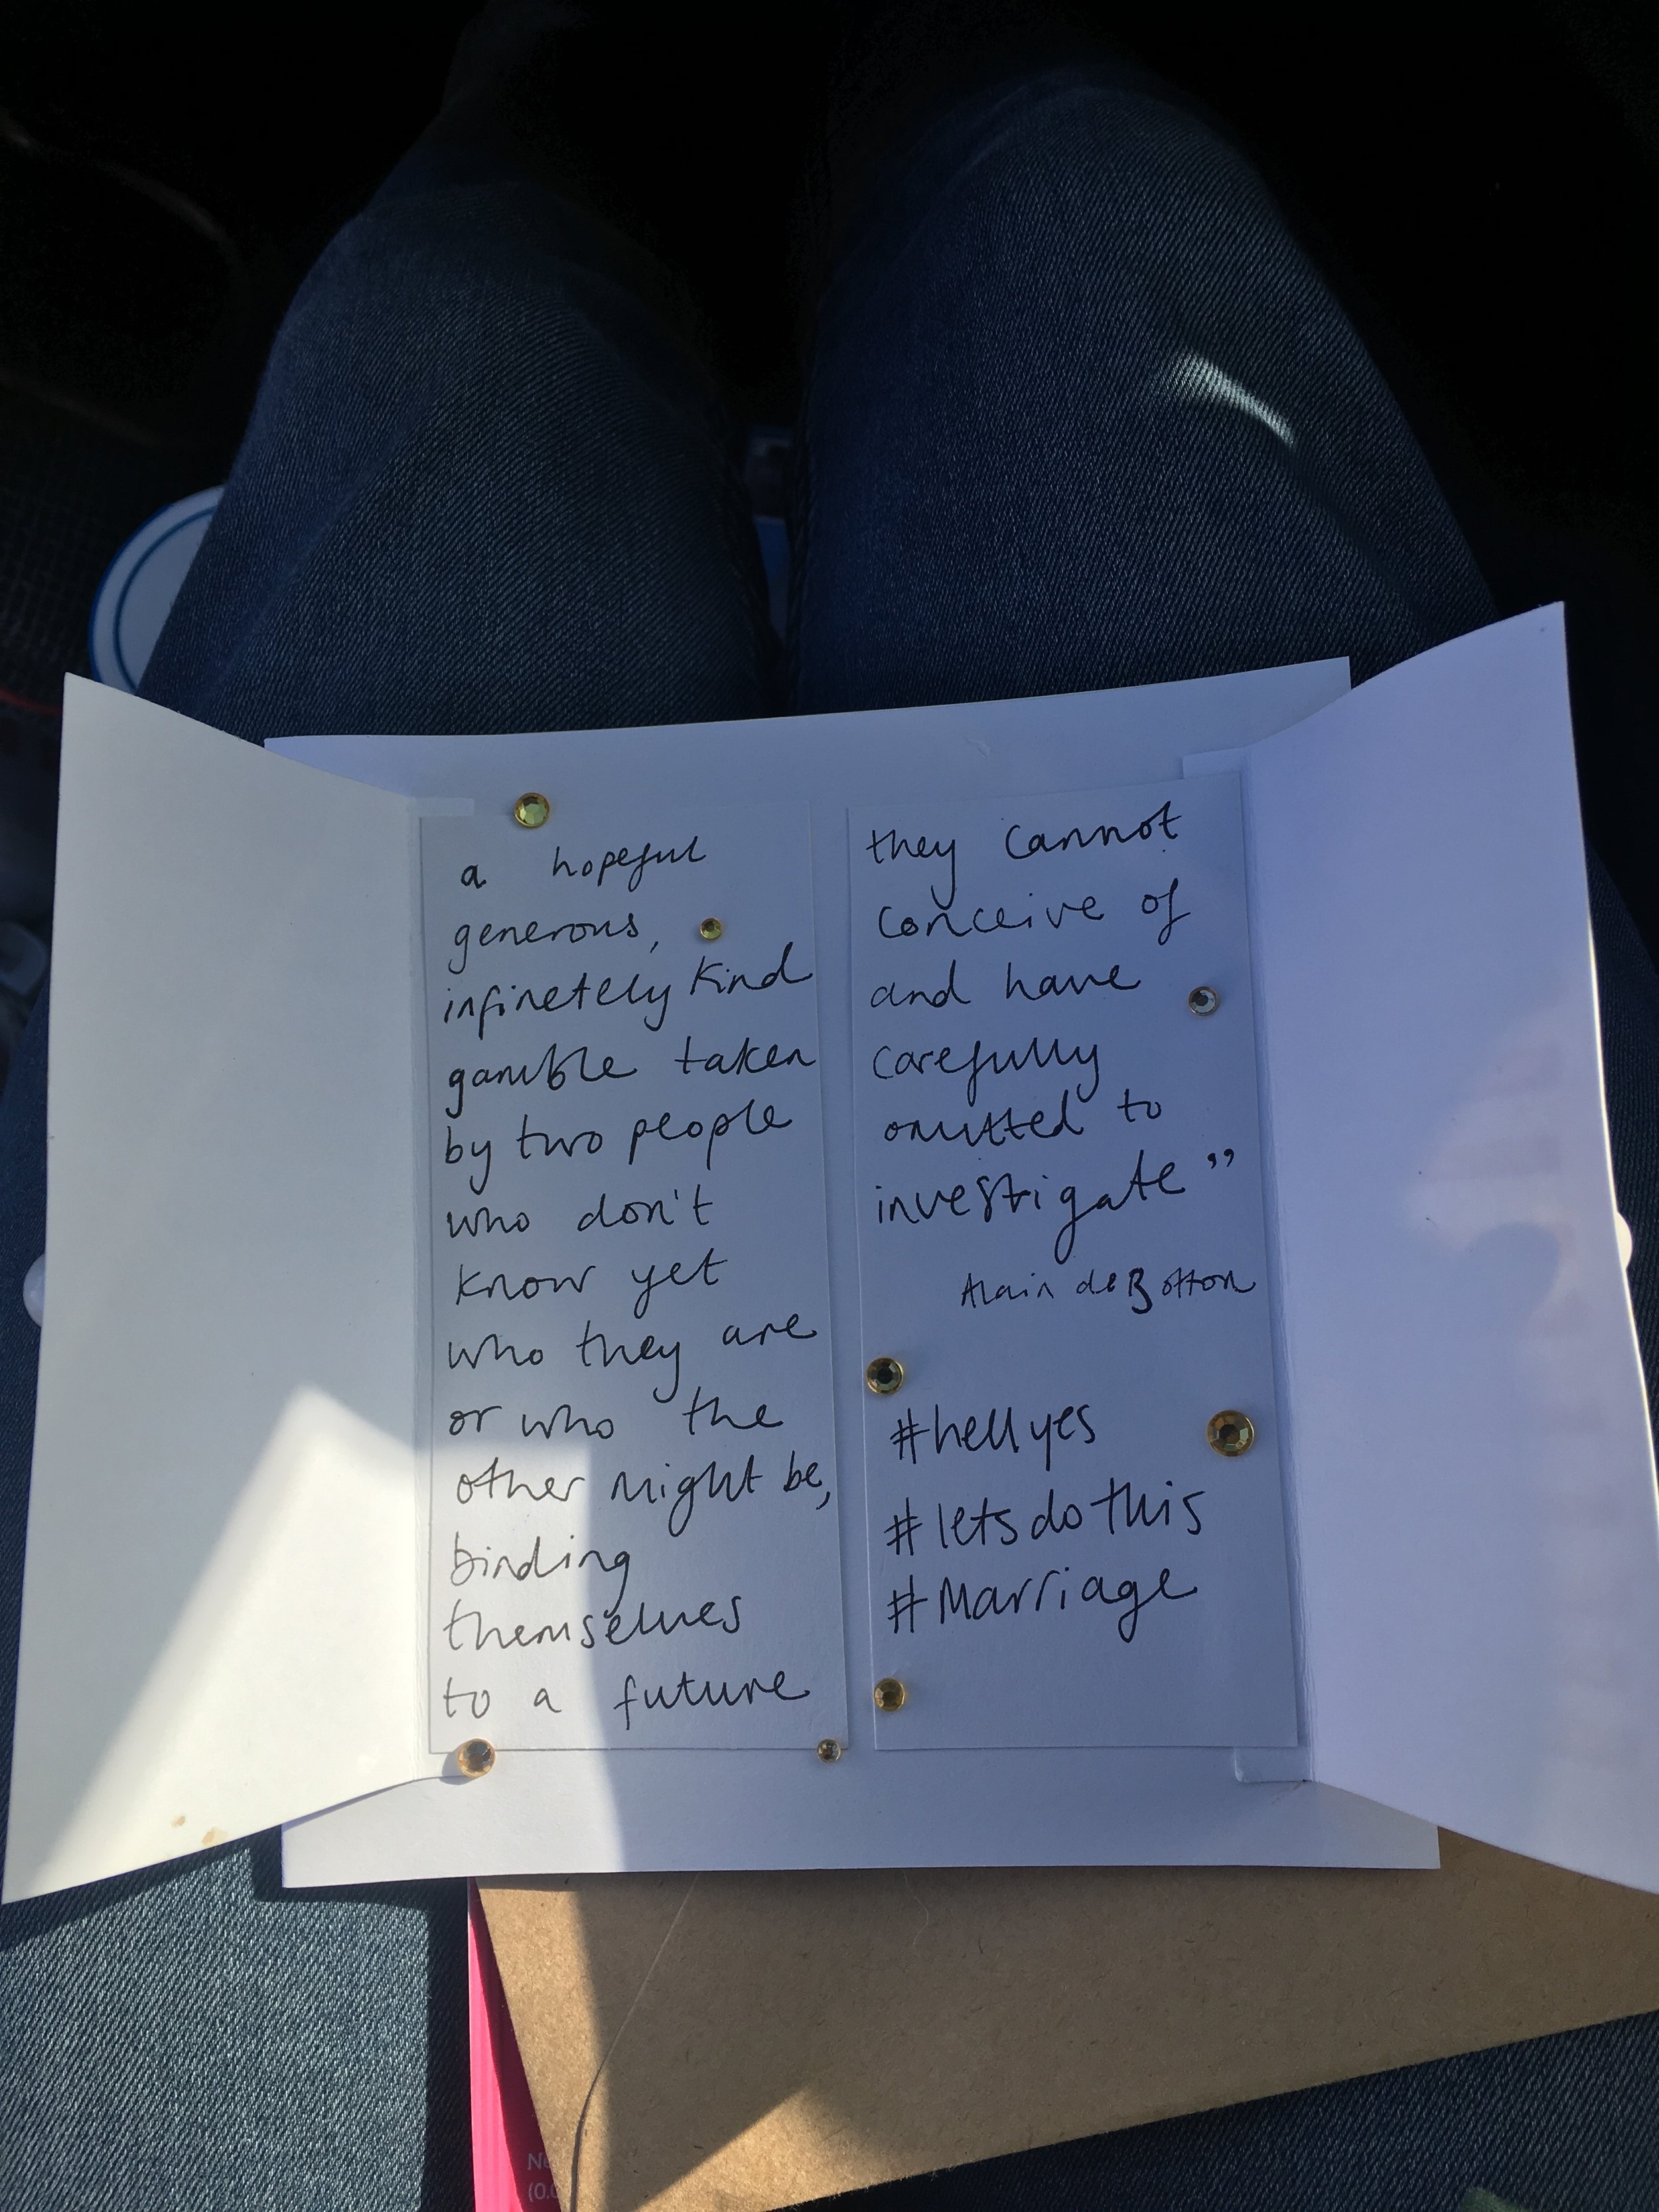 a hopeful
generous,
infinetely kind
gamble taken
by two people
who don't
know yet
who they are
or who the
other might be,
binding
themselves
to a future
they cannot
conceive of
and have
carefully
omitted to
investigate"
Alain de Botton
#hellyes
#letsdothis
#Marriage
(0.